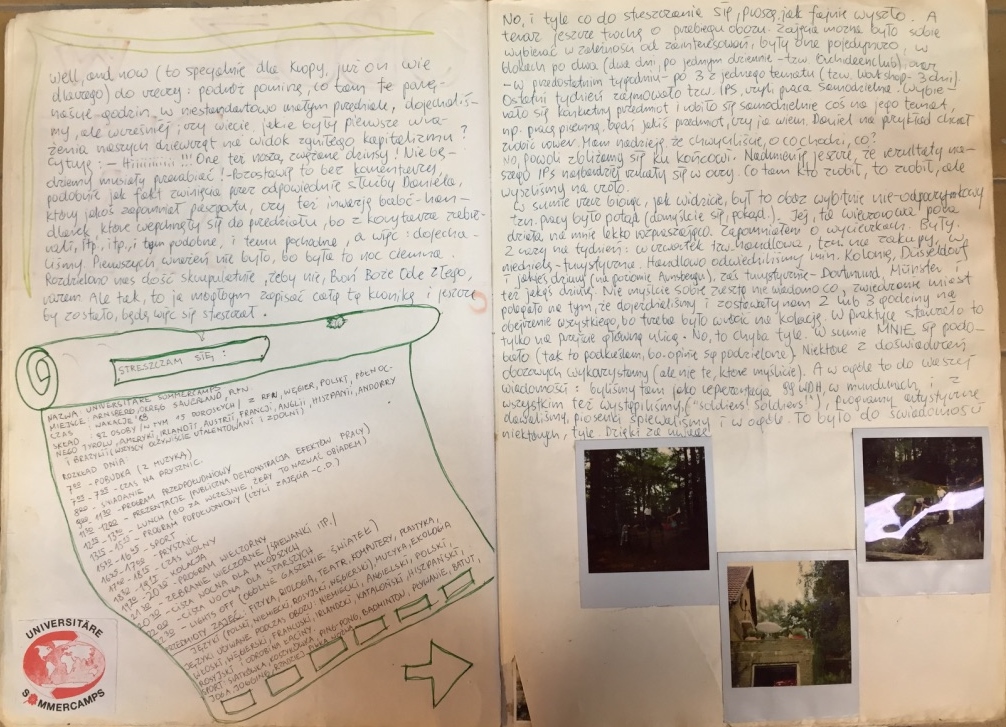 Well, and now (to specjalnie dla Kropy, już on wie
dlaczego) do rzeczy: podróż pominę, co tam te parę-
naście godzin, w niestandartowo małym przedziale, dojechaliś-
my, ale wcześniej; czy wiecie, jakie były pierwsze wra-
żenia naszych dziewcząt na widok zgniłego kapitalizmu?
Cytuję: – Hiiiiiiiiii!!! One też noszą zwężane dżinsy! Nie bę-
dziemy musiały przerabiać! – Pozostawię to bez komentarzy,
podobnie jak fakt zwinięcia przez odpowiednie służby Daniela,
który jakoś zapomniał paszportu, czy też inwazję babć-han-
dlarek, które wepchnęły się do przedziału, bo z korytarza
itp., itp., i tym podobne, i temu pochodne, a więc: dojecha-
liśmy. Pierwszych wrażeń nie było, bo była to noc ciemna.
Rozdzielono nas dość skrupulatnie, żeby nie, Broń Boże Cię złego,
razem. Ale tak, to ja mógłbym zapisać całą tę kronikę i jeszcze
by zostało, będę więc się streszczał.
STRESZCZAM SIĘ:
NAZWA: UNIVERSITÄRE SOMMERCAMPS
MIEJSCE: ARNSBERG, OKRĘG SAUERLAND, RFN
CZAS: WAKACJE
SKŁAD: 92 OSOBY (W TYM 15 DOROSŁYCH) Z RFN, WĘGIER, POLSKI, PÓŁNOC-
NEGO TYROLU, AMERYKI, IRLANDII, AUSTRII, FRANCJI, ANGLII, HISZPANII, ANDORRY
I BRAZYLII (WSZYSCY OCZYWIŚCIE UTALENTOWANI I ZDOLNI)
ROZKŁAD DNIA
7:00 - POBUDKA (Z MUZYKĄ)
- CZAS NA PRYSZNIC.
- ŚNIADANIE
- PROGRAM PRZEDPOŁUDNIOWY
- PREZENTACJE (PUBLICZNA DEMONSTRACJA EFEKTÓW PRACY)
- LUNCH (BO ZA WCZEŚNIE, ŻEBY TO NAZWAĆ OBIADEM)
- PROGRAM POPOŁUDNIOWY (CZYLI ZAJĘCIA - C.D.)
- SPORT
- PRYSZNIC
- CZAS WOLNY
- KOLACJA
- PROGRAM WIECZORNY
- ZEBRANIE WIECZORNE (ŚPIEWANKI ITP.)
- CISZA NOCNA DLA MŁODSZYCH
- CISZA NOCNA DLA STARSZYCH
- LIGHTS OFF (OGÓLNE GASZENIE ŚWIATEŁ)
PRZEDMIOTY ZAJĘĆ: FIZYKA, BIOLOGIA, TEATR, KOMPUTERY, PLASTYKA,
JĘZYKI (POLSKI, NIEMIECKI, ROSYJSKI, WĘGIERSKI), MUZYKA, EKOLOGIA
JĘZYKI UŻYWANE PODCZAS OBOZU: NIEMIECKI, ANGIELSKI, POLSKI,
WŁOSKI, WĘGIERSKI, FRANCUSKI, IRLANDZKI, KATALOŃSKI, HISZPAŃSKI,
ROSYJSKI I ODROBINA ŁACINY
SPORT: SIATKÓWKA, KOSZYKÓWKA, PING-PONG, BADMINTON, PŁYWANIE, BATUT,
JOGA, JOGGING,
UNIVERSITÄRE
SOMMERCAMPS
No, i tyle co do streszczania się, proszę jak fajnie wyszło. A
teraz jeszcze trochę o przebiegu obozu. Zajęcia można było sobie
wybierać w zależności od zainteresowań, były one pojedynczo, w
blokach po dwa (dwa dni, po jednym dziennie - tzw. Orchideenclub), oraz
- w przedostatnim tygodniu - po 3 z jednego tematu (tzw. workshop - 3 dni).
Ostatni tydzień zajmowało tzw. IPS, czyli praca samodzielna. Wybie-
rało się konkretny przedmiot i robiło się samodzielnie coś na jego temat,
np. pracę pisemną, bądź jakiś przedmiot, czy ja wiem. Daniel na przykład chciał
zrobić rower. Mam nadzieję, że chwyciliście, o co chodzi, co?
No, powoli zbliżamy się ku końcowi. Nadmienię jeszcze, że rezultaty na-
szego IPS najbardziej rzucały się w oczy. Co tam kto zrobił, to zrobił, ale
wyszliśmy na czoło.
W sumie rzecz biorąc, jak widzicie, był to obóz wybitnie nie-odpoczynkowy
tzn. pracy było potąd (domyślcie się, pokąd). Jej, ta wieczorowa pora
działa na mnie lekko rozpraszająco. Zapomniałem o wycieczkach. Były
2 razy na tydzień: w czwartek tzw. handlowa, tzn. na zakupy, i w
niedzielę - turystyczna. Handlowo odwiedziliśmy m.in. Kolonię, Düsseldorf
i jakąś dziurę (na poziomie Arnsbergu), zaś turystycznie - Dortmund, Münster i
też jakąś dziurę. Nie myślcie sobie zresztą nie wiadomo co, zwiedzanie miast
polegało na tym, że dojeżdżaliśmy i zostawały nam 2 lub 3 godziny na
obejrzenie wszystkiego, bo trzeba było wrócić na kolację. W praktyce starczało to
tylko na przejście główną ulicą. No, to chyba tyle. W sumie MNIE się podo-
bało (tak to podkreślam, bo opinie są podzielone). Niektóre z doświadczeń
obozowych wykorzystamy (ale nie te, które myślicie). A w ogóle to do waszej
wiadomości: byliśmy tam jako reprezentacja 99 WDH, w mundurach, i z
wszystkim też występiliśmy ("soldiers! soldiers!"), programy artystyczne
dawaliśmy, piosenki śpiewaliśmy i w ogóle. To było do świadomości
niektórych, tyle. Dzięki za uwagę